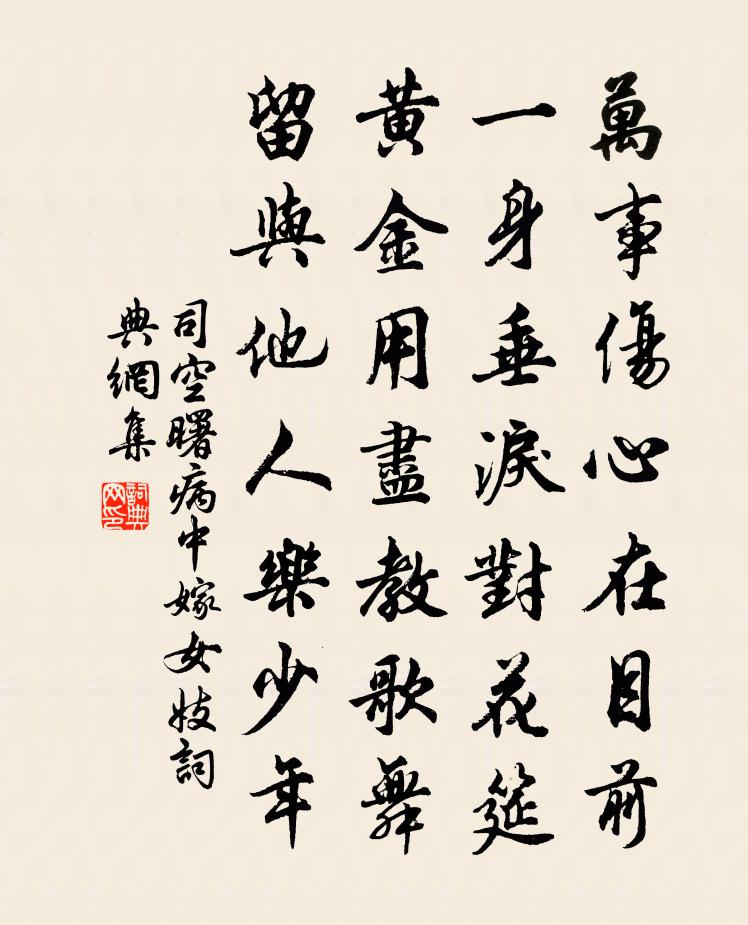 萬事傷心在目前
一身垂淚對花筵
黃金用盡教歌舞
留與他人樂少年
司空曙病中嫁女妓詞
典網集
詞典
网印